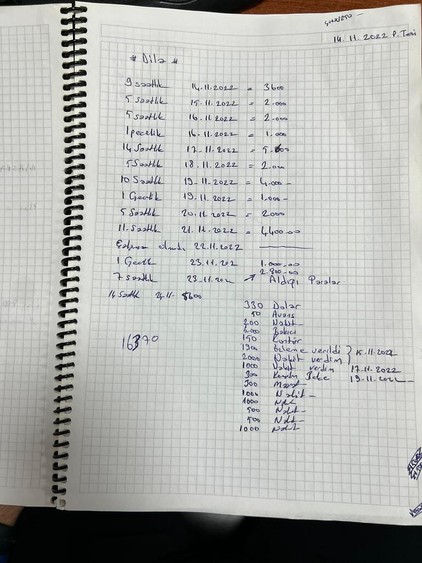 14.11.2022 P.Tesi
* Dila *
9 saatlik 14.11.2022 = 3600
5 saatlik 15.11.2022 = 2.000
5 saatlik 16.11.2022 = 2.000
1 gecelik 16.11.2022 = 1.000
14 Saatlik 17.11.2022 =
5 Saatlik 18.11.2022 = 2.000
10 Saatlik 19.11.2022 = 4.000 -
1 Gecelik 19.11.2022 = 1.000 -
5 Saatlik 20.11.2022 = 2000
11. Saatlik 21.11.2022 = 4400.00
22.11.2022
1 Gecelik 23.11.202 1.000.00
7 saatlik 23.11.202 2.800.00
Aldığı Paralar
14 Saatlik 24.11. 5600
330 Dolar
50 Avans
200 Nakit
Bakıcı
150 Kontör
1300 Ödeme verildi } 15.11.2022
2000 Nakit verdim
1000 Nakit verdim 17.11.2022
300 19.11.2022
300
1000 Nakit -
1000 Nakit
500 Nakit
500 Nakit
1000 Nakit
16370